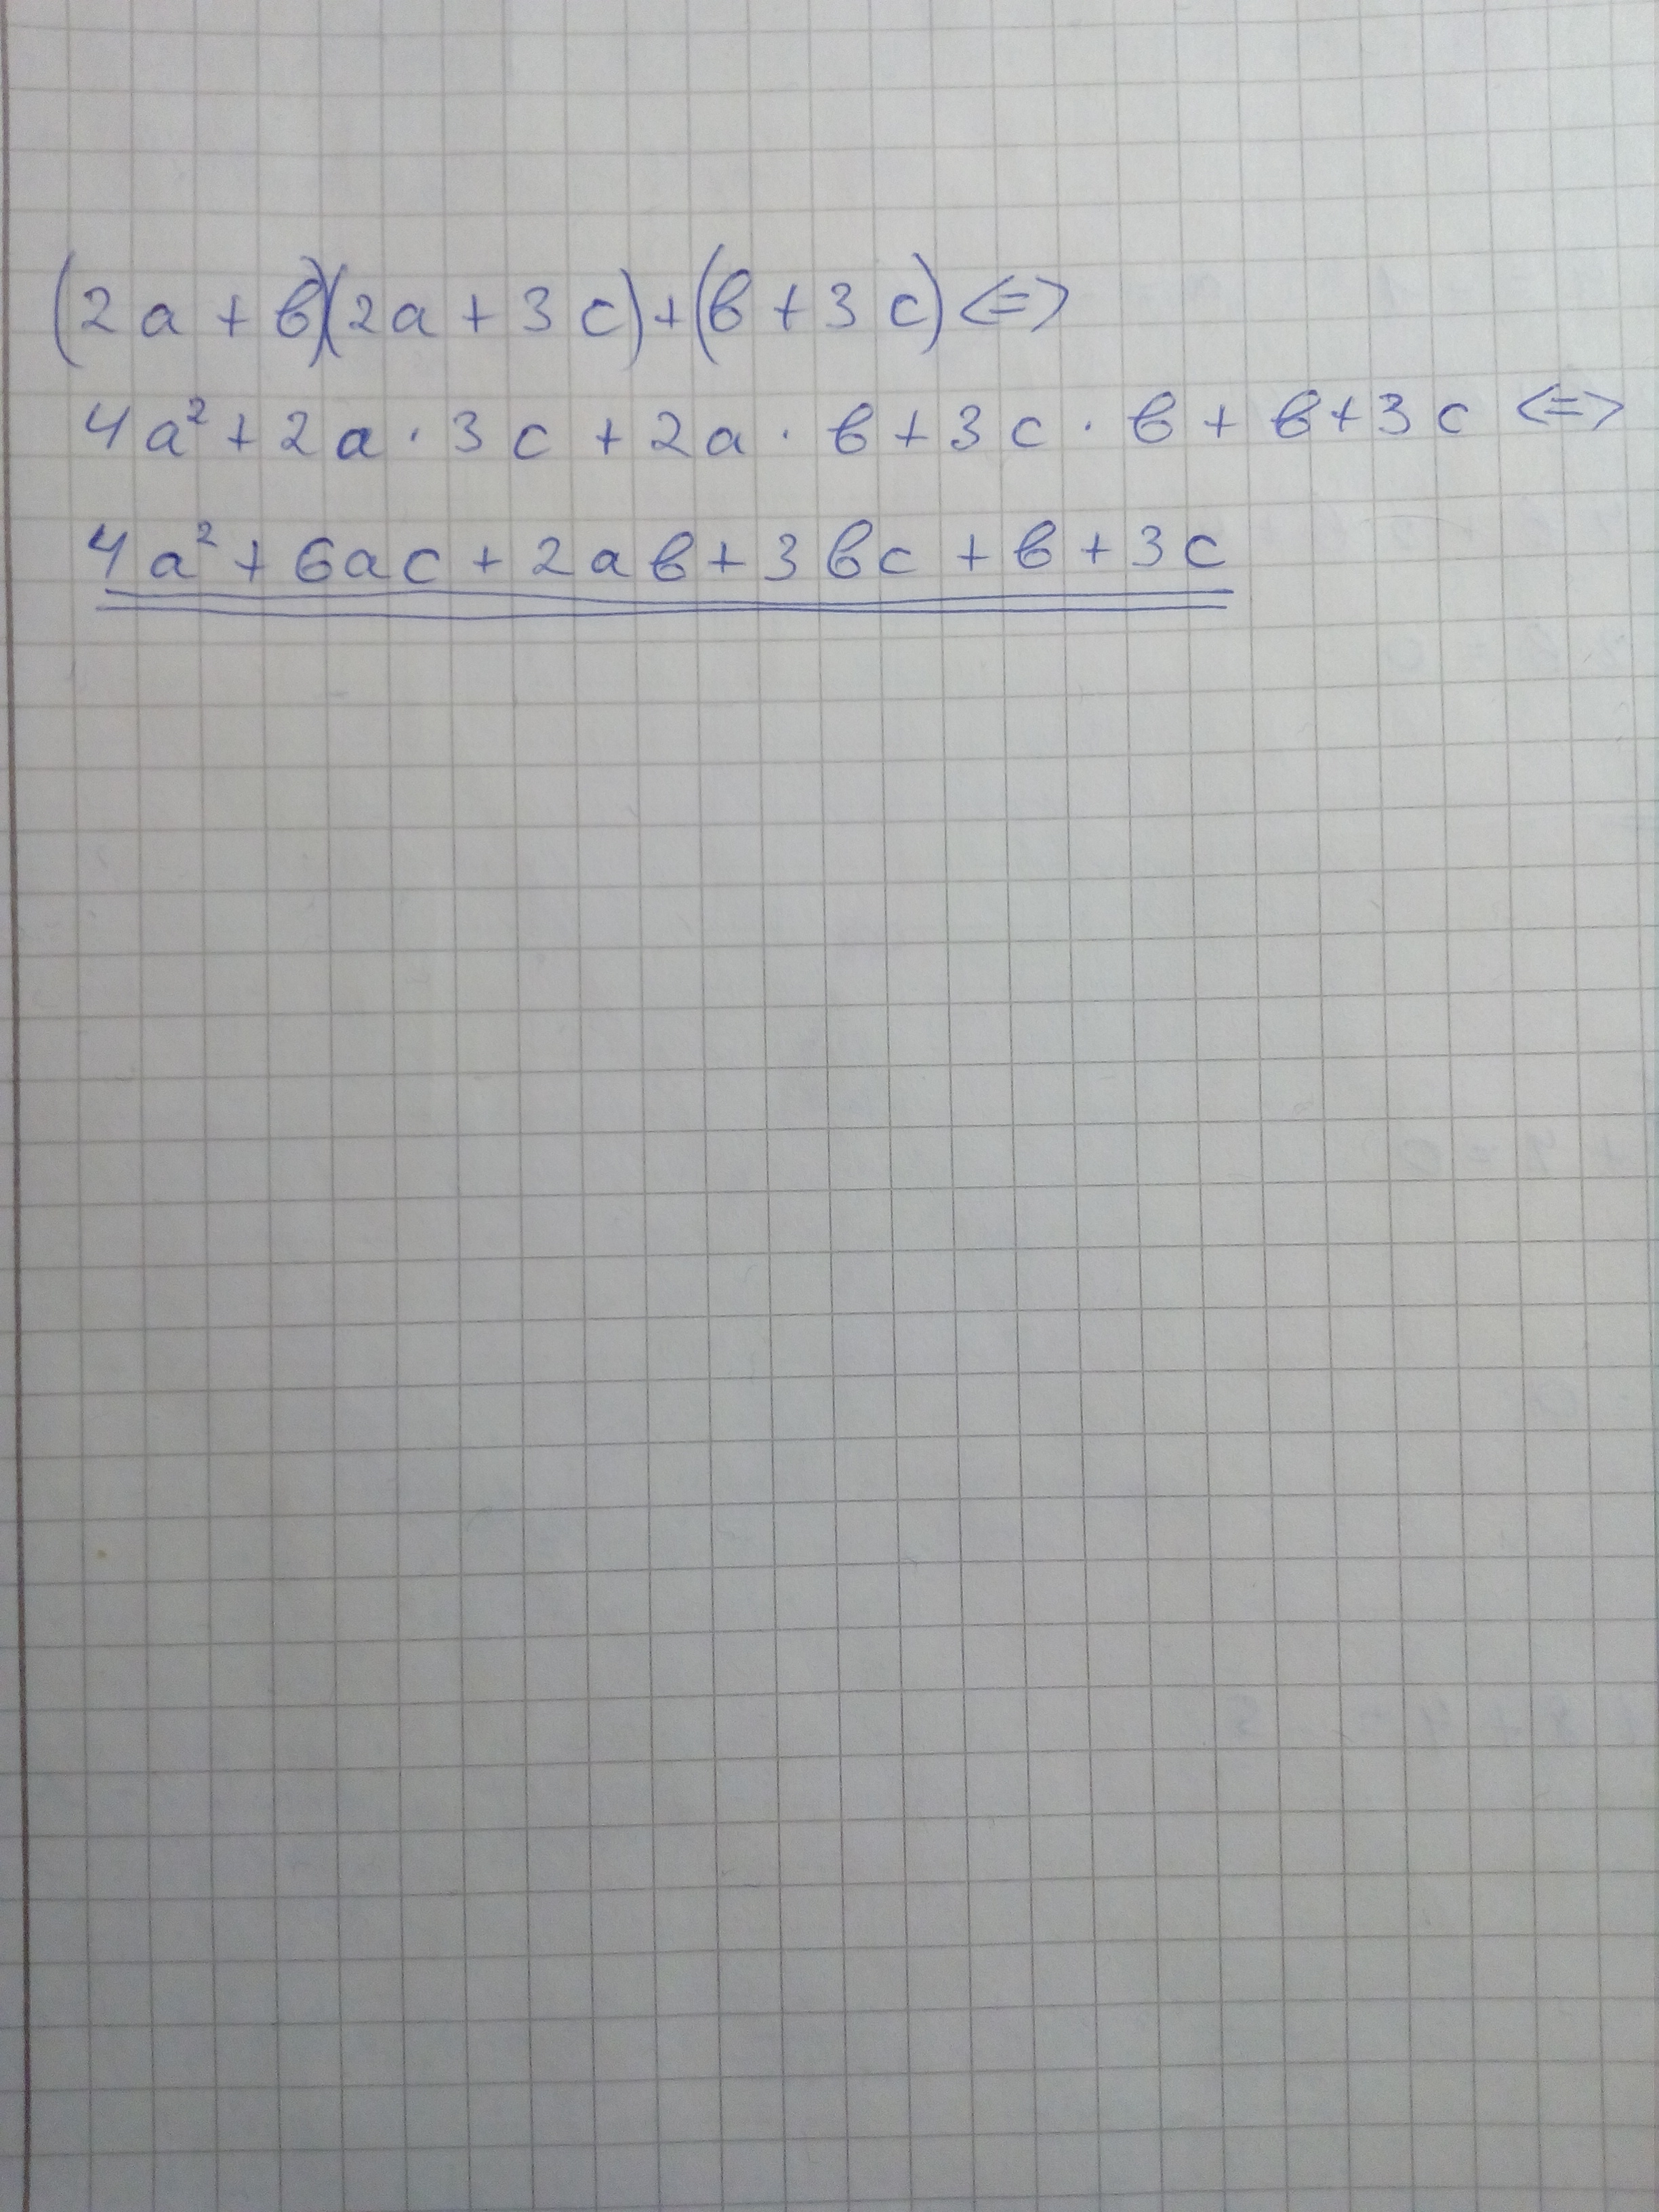 (2a + b)(2a + 3c) + (b + 3c) <=>
4a² + 2a · 3c + 2a · b + 3c · b + b + 3c <=>
4a² + 6ac + 2ab + 3bc + b + 3c